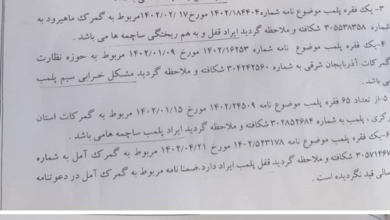 ۳- یک فقره پلمب موضوع نامه شماره ۱۴۰۲/۱۸۴۴۰۴ مورخ ۱۴۰۲/۰۲/۱۷ مربوط به گمرک ماهیرود به
شماره ۳۰۵۵۳۸۳۵۸ شکافته و ملاحظه گردید ایراد قفل و به هم ریختگی ساچمه ها می باشد .
۴-یک فقره پلمب موضوع نامه شماره ۱۴۰۲/۱۶۲۵۳ مورخ ۱۴۰۲/۰۱/۰۹ مربوط به حوزه نظارت
گمرکات آذربایجان شرقی به شماره ۳۰۴۲۴۲۵۶۰ شکافته و ملاحظه گردید مشکل خرابی سیم پلمب
باشد .
۵-از تعداد ۶۵ فقره پلمب موضوع نامه ۱۴۰۲/۲۴۵۰۹ مورخ ۱۴۰۲/۰۱/۱۵ مربوط به گمرکات استان
رکزی ، پلمب به شماره ۳۰۲۸۵۲۶۸۴ شکافته و ملاحظه گردید ایراد پلمب ساچمه هامی باشد .
۶-یک فقره پلمب موضوع نامه ۱۴۰۲/۵۲۳۱۷۸ مورخ ۱۴۰۲/۰۴/۲۱ مربوط به گمرک آمل به شماره
۳۰۵۷۱۴۶۷ شکافته و ملاحظه گردید قفل پلمب ایراد دارد.ضمنا نامه مربوط به گمرک آمل در دعوتنامه
سالی قید نگردیده است .